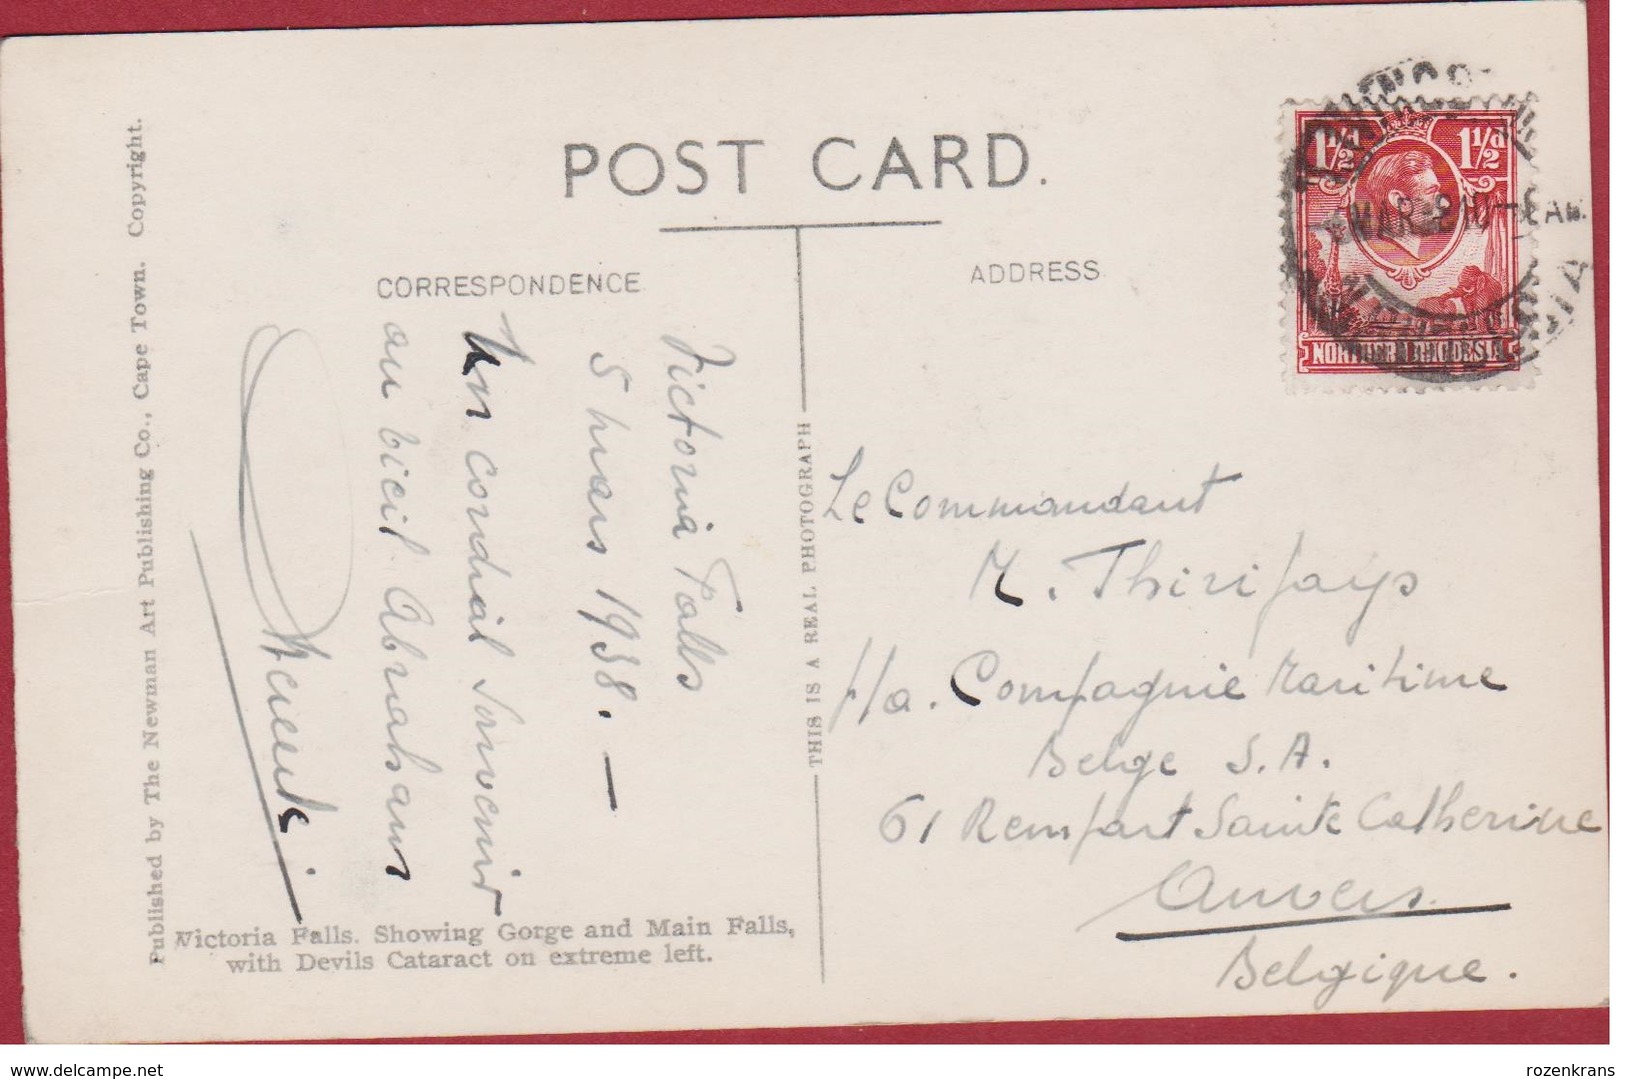 POST CARD.
CORRESPONDENCE
ADDRESS
1½d 1½d
NORTHERN RHODESIA
Victoria Falls
5 mars 1938. —
Un cordial Souvenir
au vieil Abraham
Le Commandant
M. Thirifays
f/a. Compagnie Maritime
Belge S.A.
61 Rempart Sainte Catherine
Anvers.
Belgique.
THIS IS A REAL PHOTOGRAPH
Published by The Newman Art Publishing Co., Cape Town. Copyright.
Victoria Falls. Showing Gorge and Main Falls,
with Devils Cataract on extreme left.
delcampe.net
rozenkrans